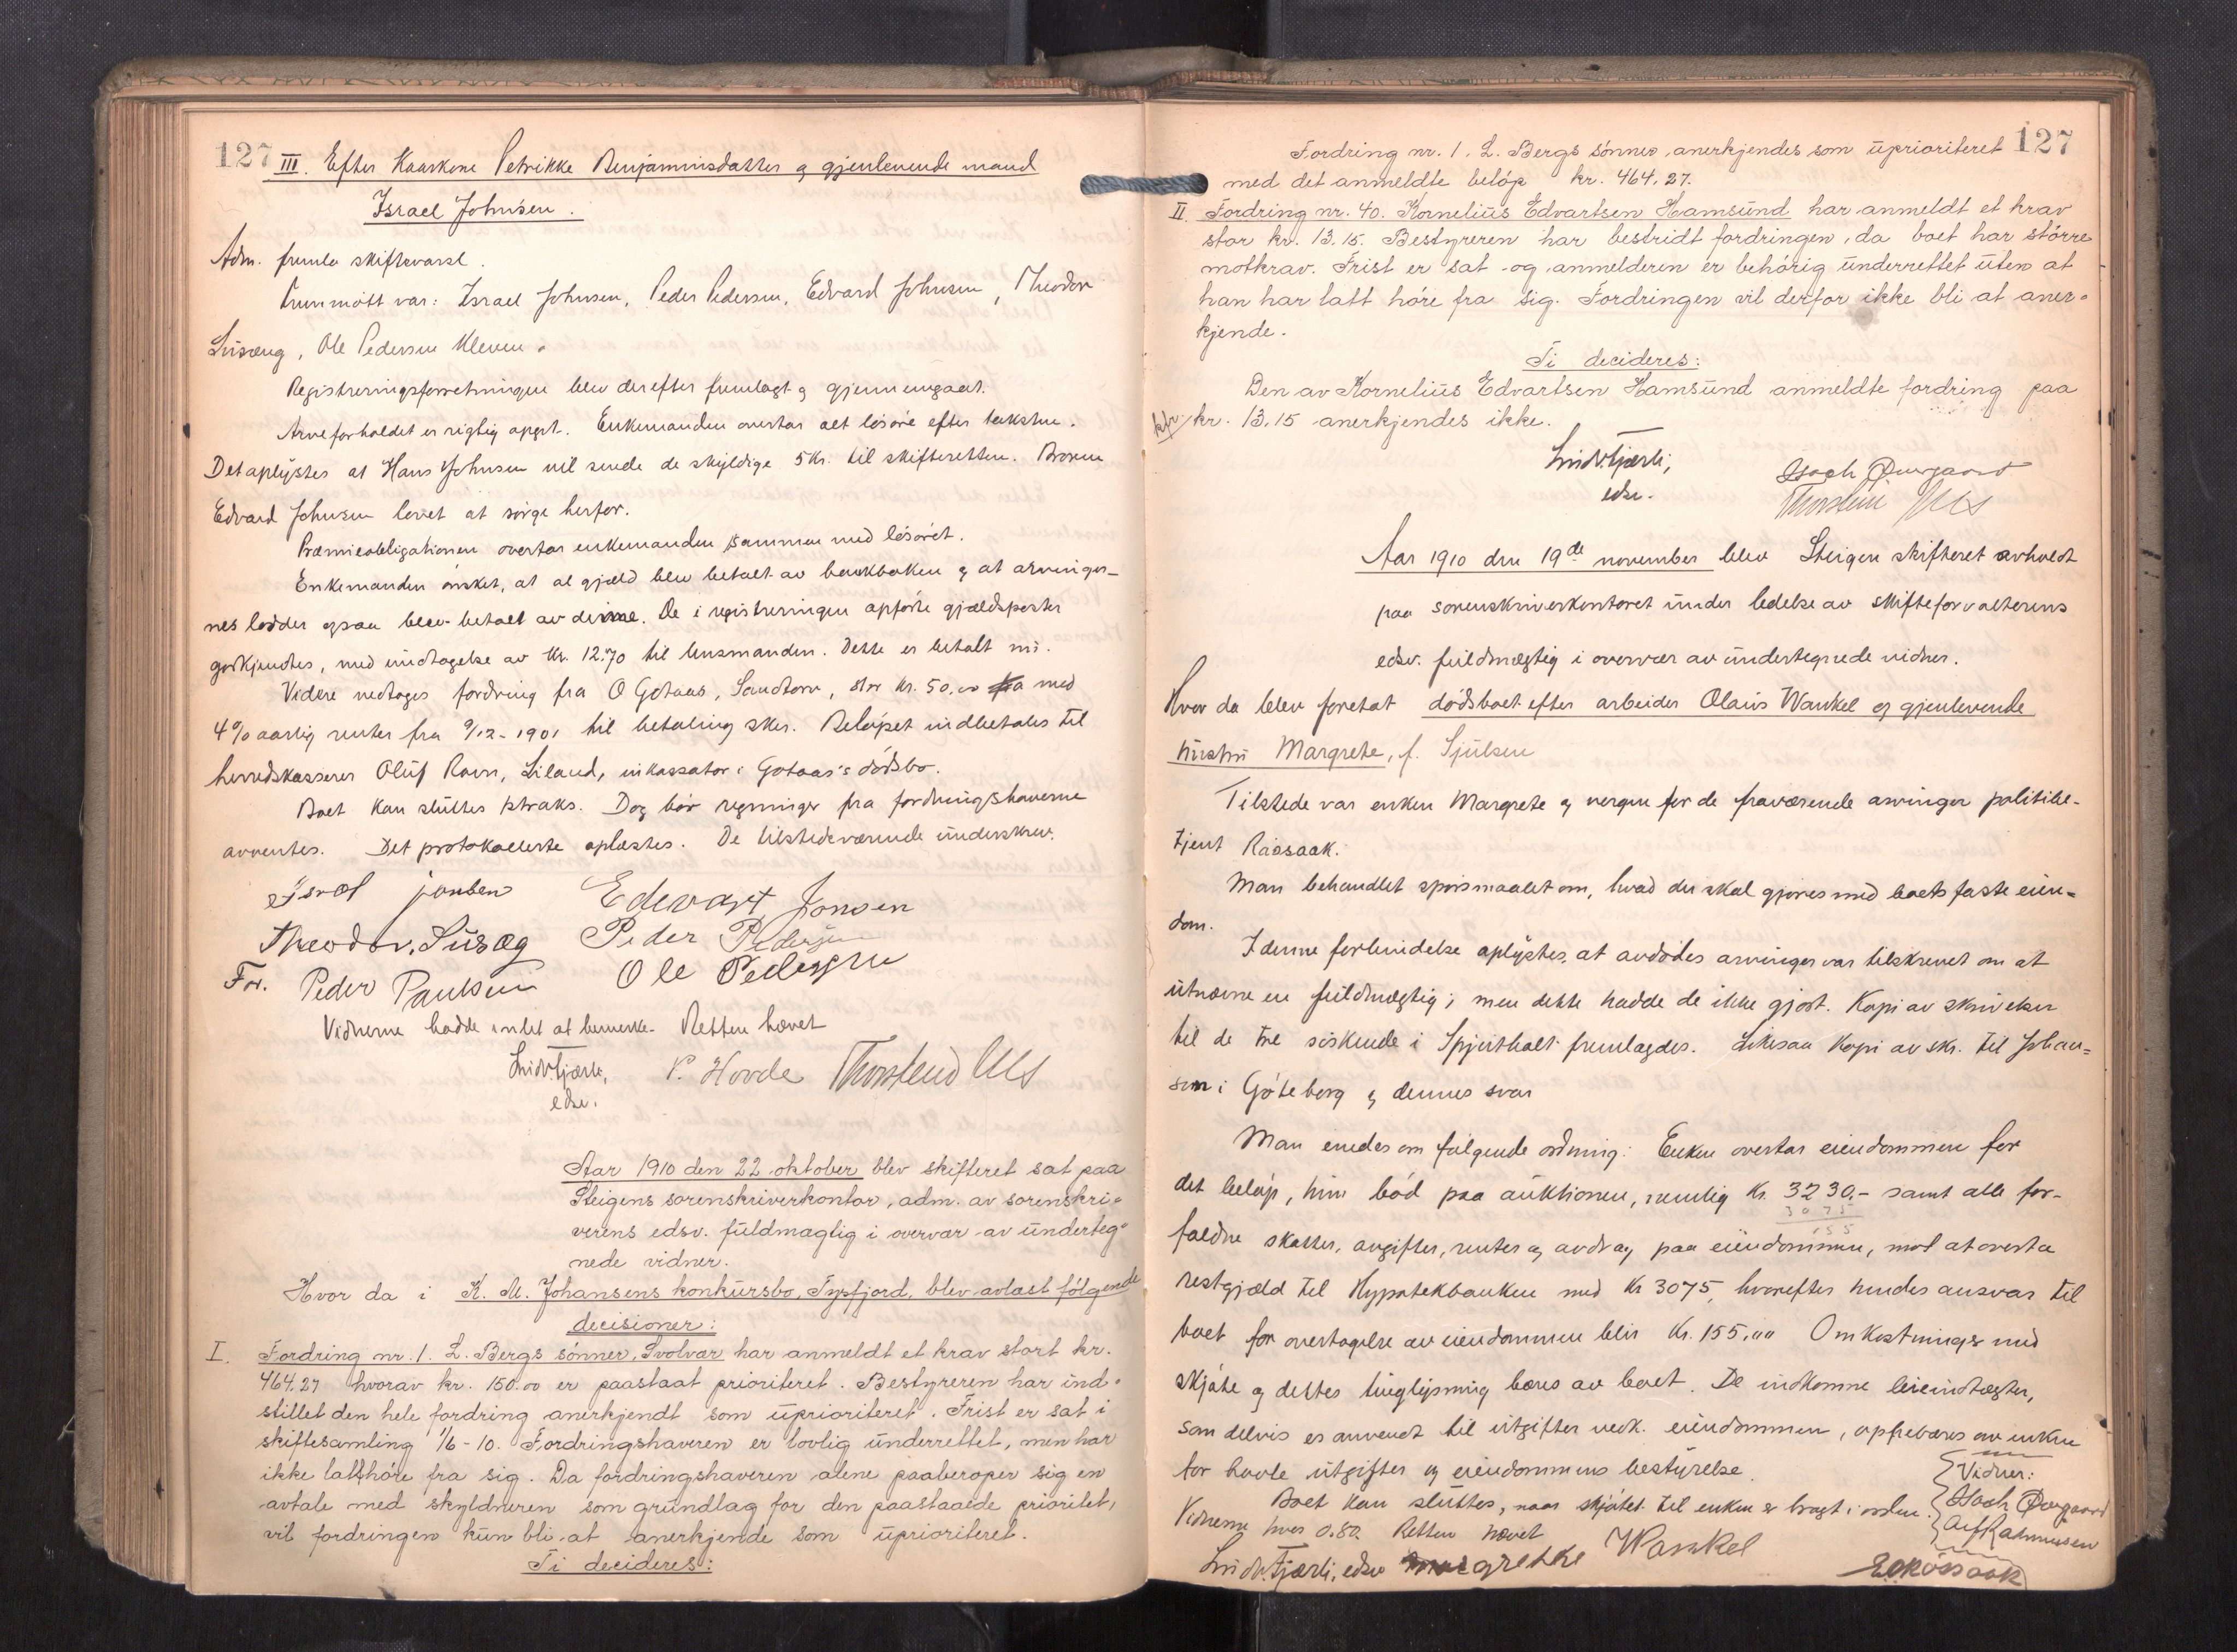 127
III. Efter Kaarkone Petrikke Benjaminsdatter og gjenlevende mand
Israel Johnsen.
Adm. fremla skiftevarsel.
Fremmøtt var: Israel Johnsen, Peder Pedersen, Edvard Johnsen, Theodor
Lusæng, Ole Pedersen Kleven.
Registreringsforretningen blev derefter fremlagt og gjennemgaat.
Arveforholdet er rigtig opgit. Enkemanden overtar alt løsøre efter taksten.
Det oplystes at Hans Johnsen vil sende de skyldige 5 Kr. til skifteretten. Broren
Edvard Johnsen lovet at sørge herfor.
Præmieobligationen overtar enkemanden sammen med løsøret.
Enkemanden ønsket, at al gjæld blev betalt av bankboken og at arvinger-
nes lodder ogsaa blev betalt av denne. De i registreringen opførte gjældsposter
godkjendtes, med undtagelse av Kr. 12.70 til lensmanden. Dette er betalt nu.
Videre vedtages fordring fra O Gotaas, Sandtorv, stor kr. 50.00 med
4% aarlig renter fra 9/12-1901 til betaling sker. Beløpet indbetales til
herredskasserer Oluf Ravn, Liland, inkassator i Gotaas's dødsbo.
Boet kan sluttes straks. Dog bør regninger fra fordringshaverne
avventes. Det protokollerte oplæstes. De tilstedeværende underskrev.
Isral jonsen Edevart Jonsen
Theodor. Lusæg Peder Pedersen
For. Peder Paulsen Ole Pedersen
Vidnerne hadde intet at bemerke. Retten hævet
Lindv. Tjærli, P. Hovde Thorstein Uls
edsv.
Aar 1910 den 22 oktober blev skifteret sat paa
Steigens sorenskriverkontor, adm. av sorenskri-
verens edsv. fuldmægtig i overvær av underteg-
nede vidner.
Hvor da i K. M. Johansens konkursbo, Typfjord, blev avlæst følgende
decisioner:
I. Fordring nr. 1. L. Bergs sønner, Svolvær har anmeldt et krav stort kr.
464.27 hvorav kr. 150.00 er paastaat prioriteret. Bestyreren har ind-
stillet den hele fordring anerkjendt som uprioriteret. Frist er sat i
skiftesamling 1/6-10. Fordringshaveren er lovlig underrettet, men har
ikke latt høre fra sig. Da fordringshaveren alene paaberoper sig en
avtale med skyldneren som grundlag for den paastaaede prioritet,
vil fordringen kun bli at anerkjende som uprioriteret.
Ti decideres:
127
Fordring nr. 1. L. Bergs sønner, anerkjendes som uprioriteret
med det anmeldte beløp kr. 464,27.
II. Fordring nr. 40. Kornelius Edvartsen Hamsund har anmeldt et krav
stor kr. 13.15. Bestyreren har bestridt fordringen, da boet har større
motkrav. Frist er sat og anmelderen er behørig underrettet uten at
han har latt høre fra sig. Fordringen vil derfor ikke bli at aner-
kjende.
Ti decideres:
Den av Kornelius Edvartsen Hamsund anmeldte fordring paa
kr. 13.15 anerkjendes ikke.
Lindv. Tjærli,
edsv.
Thorstein Uls
Aar 1910 den 19de november blev Steigen skifteret avholdt
paa sorenskriverkontoret under ledelse av skifteforvalterens
edsv. fuldmægtig i overvær av undertegnede vidner.
Hvor da blev foretat dødsboet efter arbeider Olaus Wankel og gjenlevende
hustru Margrete, f. Sjulsen
Tilstede var enken Margrete og vergen for de fraværende arvinger politibe-
tjent Raasaak.
Man behandlet spørsmaalet om, hvad der skal gjøres med boets faste eien-
dom.
I denne forbindelse oplystes, at avdødes arvinger var tilskrevet om at
utnævne en fuldmægtig; men dette hadde de ikke gjort. Kopi av skrivelser
til de tre søskende i Spjutholt fremlagdes. Likesaa kopi av skr. til Johan-
son i Göteborg og dennes svar
Man enedes om følgende ordning: Enken overtar eiendommen for
det beløp, hun bød paa auktionen, nemlig Kr. 3230.- samt alle for-
3075
155
faldne skatter, avgifter, renter og avdrag paa eiendommen, mot at overta
restgjæld til Hypotekbanken med Kr 3075, hvorefter hendes ansvar til
boet for overtagelse av eiendommen blir Kr. 155.00 Omkostninger med
skjøte og dettes tinglysning bæres av boet. De indkomne leieindtægter,
som delvis er anvendt til utgifter vedk. eiendommen, oppebæres av enken
for havte utgifter og eiendommens bestyrelse.
Boet kan sluttes, naar skjøtet til enken er bragt i orden.
Vidnerne hver 0.80. Retten hævet
Vidner:
Alf Rasmussen
Lindv. Tjærli, edsv Margrethe Wankel